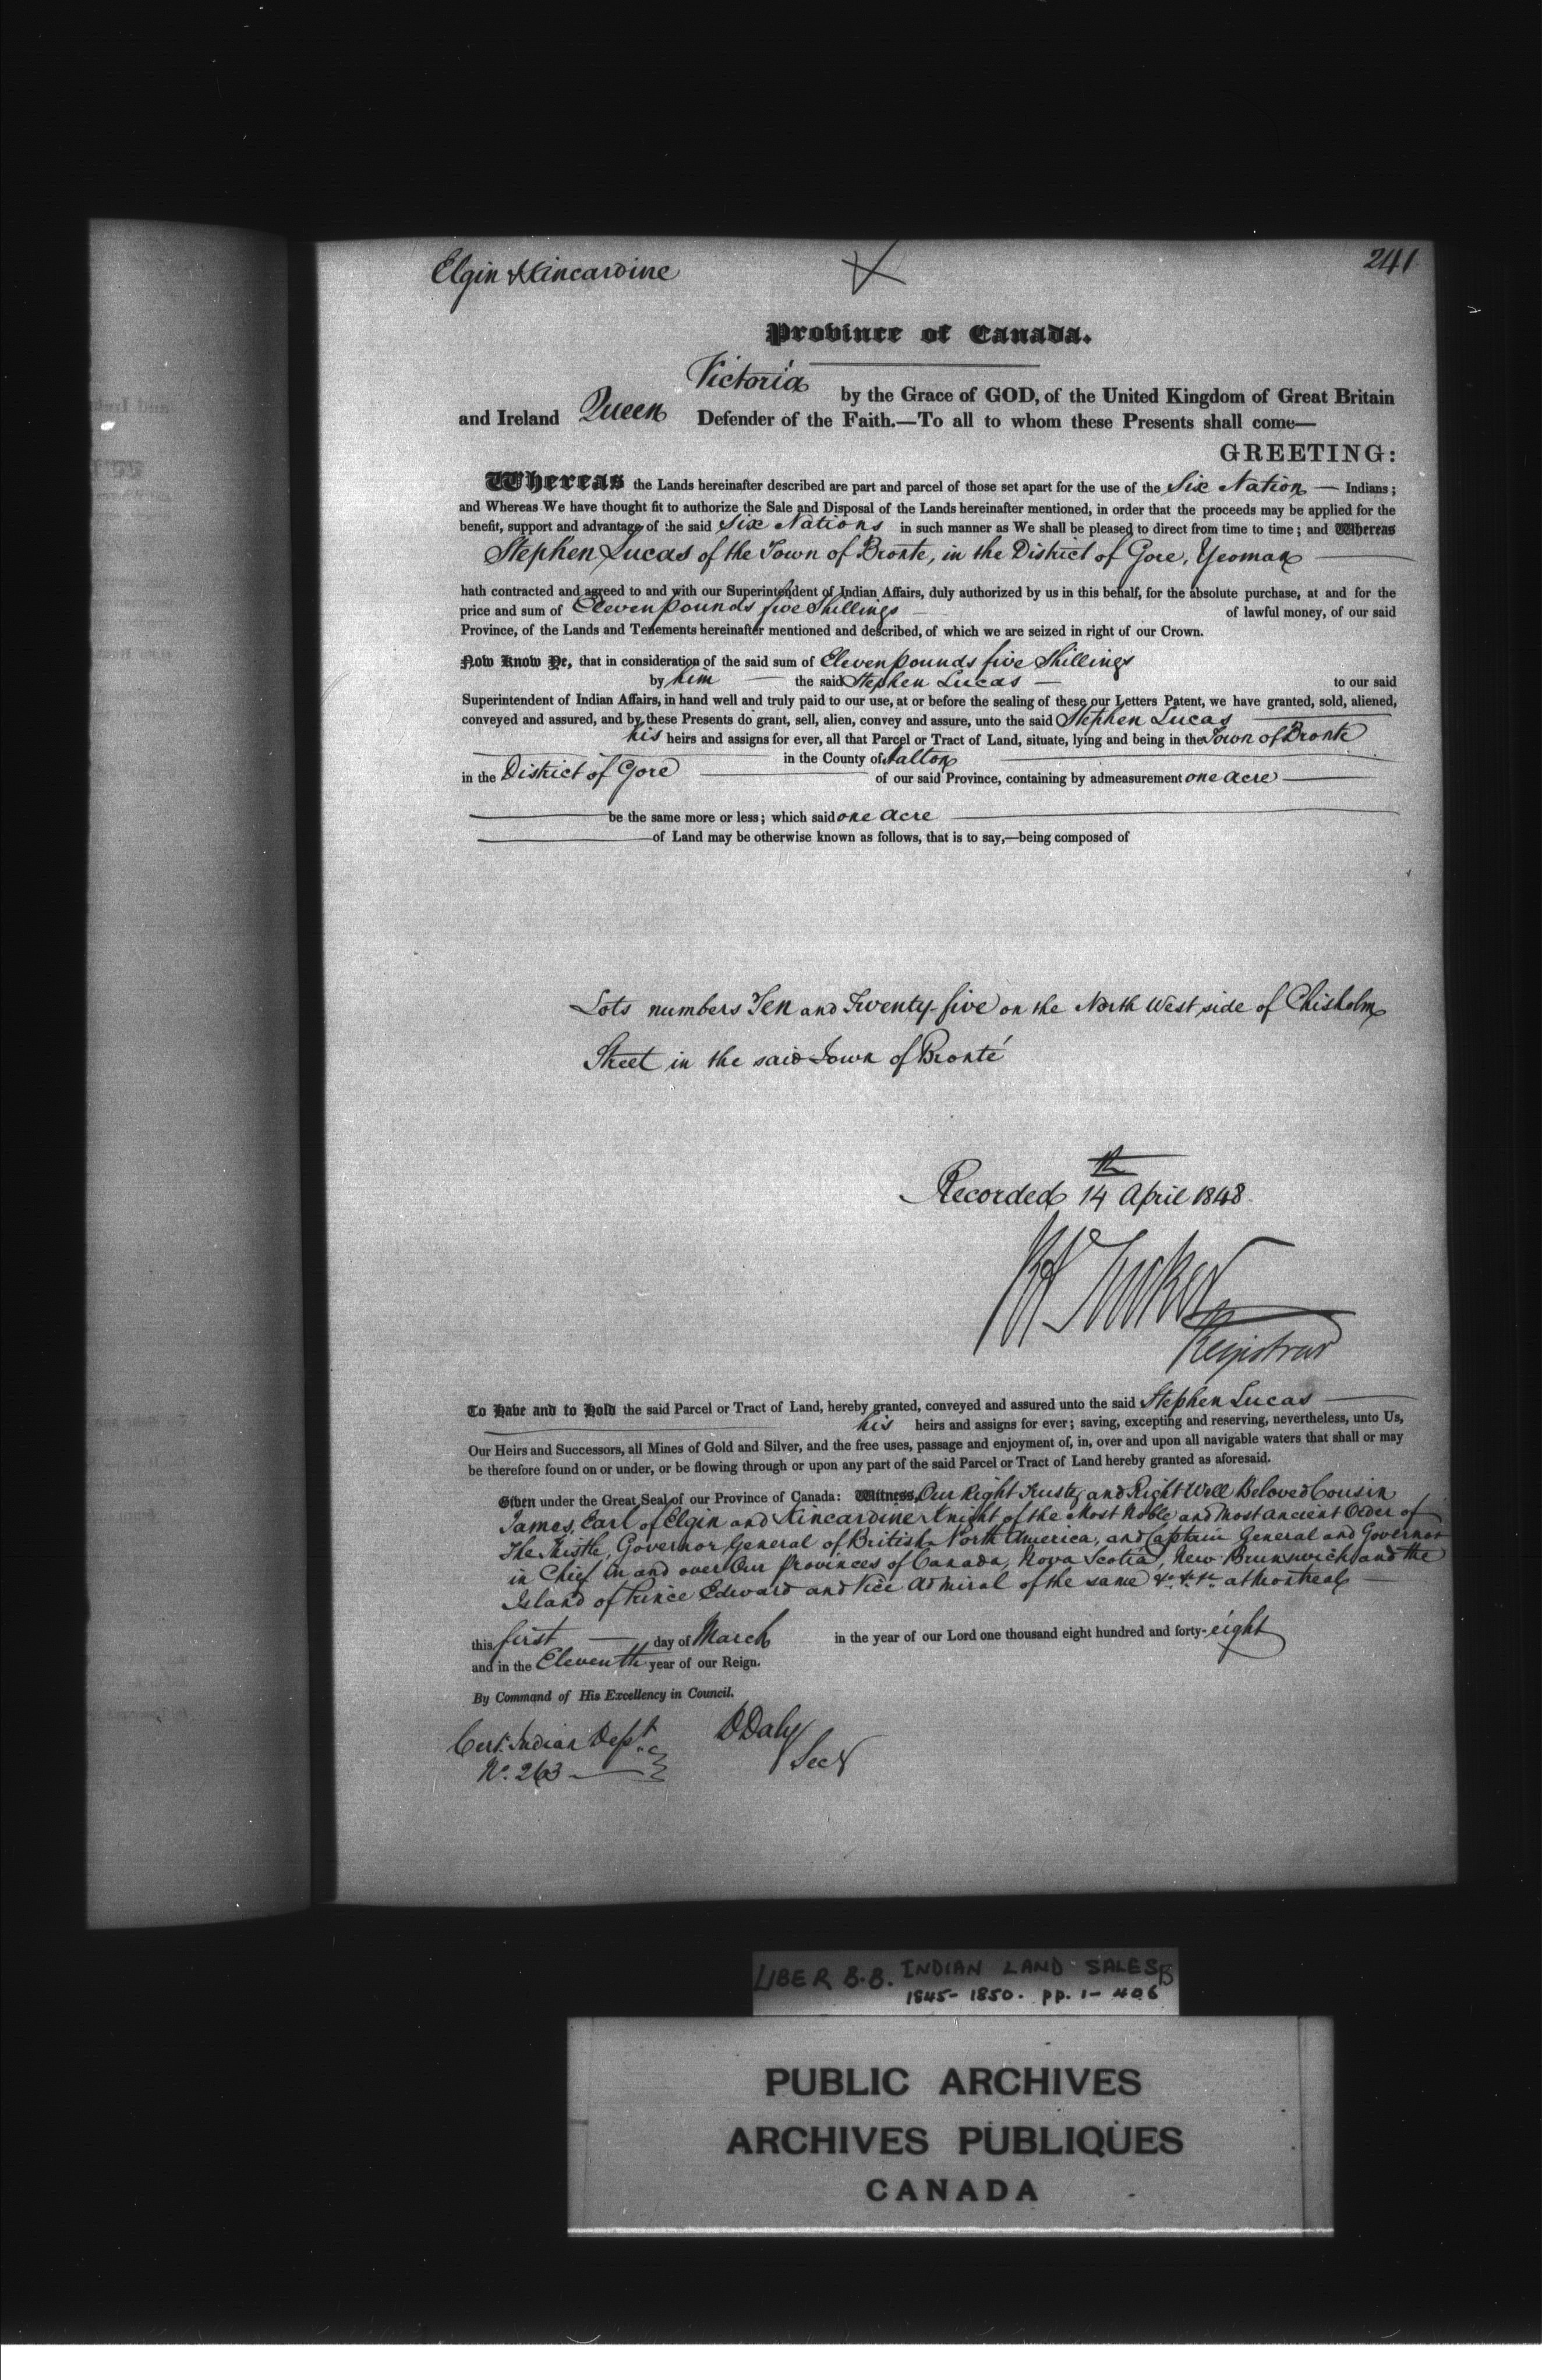 Elgin & Kincardine
241
Province of Canada.
Victoria by the Grace of GOD, of the United Kingdom of Great Britain
and Ireland Queen Defender of the Faith.—To all to whom these Presents shall come—
GREETING:
Whereas the Lands hereinafter described are part and parcel of those set apart for the use of the Six Nation — Indians;
and Whereas We have thought fit to authorize the Sale and Disposal of the Lands hereinafter mentioned, in order that the proceeds may be applied for the
benefit, support and advantage of the said Six Nations in such manner as We shall be pleased to direct from time to time; and Whereas
Stephen Lucas of the Town of Bronte, in the District of Gore, Yeoman
hath contracted and agreed to and with our Superintendent of Indian Affairs, duly authorized by us in this behalf, for the absolute purchase, at and for the
price and sum of Eleven pounds five Shillings — of lawful money, of our said
Province, of the Lands and Tenements hereinafter mentioned and described, of which we are seized in right of our Crown.
Now Know Ye, that in consideration of the said sum of Eleven pounds five Shillings
by him — the said Stephen Lucas — to our said
Superintendent of Indian Affairs, in hand well and truly paid to our use, at or before the sealing of these our Letters Patent, we have granted, sold, aliened,
conveyed and assured, and by these Presents do grant, sell, alien, convey and assure, unto the said Stephen Lucas
his heirs and assigns for ever, all that Parcel or Tract of Land, situate, lying and being in the Town of Bronte
in the County of Halton
in the District of Gore of our said Province, containing by admeasurement one acre
be the same more or less; which said one acre
of Land may be otherwise known as follows, that is to say,—being composed of
Lots numbers Ten and Twenty-five on the North West side of Chisholm
Street in the said Town of Bronté
th
Recorded 14 April 1848.
Tucker
Registrar
To Have and to Hold the said Parcel or Tract of Land, hereby granted, conveyed and assured unto the said Stephen Lucas
his heirs and assigns for ever; saving, excepting and reserving, nevertheless, unto Us,
Our Heirs and Successors, all Mines of Gold and Silver, and the free uses, passage and enjoyment of, in, over and upon all navigable waters that shall or may
be therefore found on or under, or be flowing through or upon any part of the said Parcel or Tract of Land hereby granted as aforesaid.
Given under the Great Seal of our Province of Canada: Witness, Our Right Trusty and Right Well Beloved Cousin
James, Earl of Elgin and Kincardine Knight of the Most Noble and Most ancient Order of
The Thistle, Governor General of British North America, and Captain General and Governor
in Chief in and over Our Provinces of Canada, Nova Scotia, New Brunswick and the
Island of Prince Edward and Vice Admiral of the same &c. &c. &c. at Montreal —
this first — day of March in the year of our Lord one thousand eight hundred and forty-eight
and in the Eleventh year of our Reign.
By Command of His Excellency in Council.
Cert. Indian Dept. D Daly
No. 263 Secy
LIBER B.B. INDIAN LAND SALES
1845-1850. pp. 1-406
PUBLIC ARCHIVES
ARCHIVES PUBLIQUES
CANADA